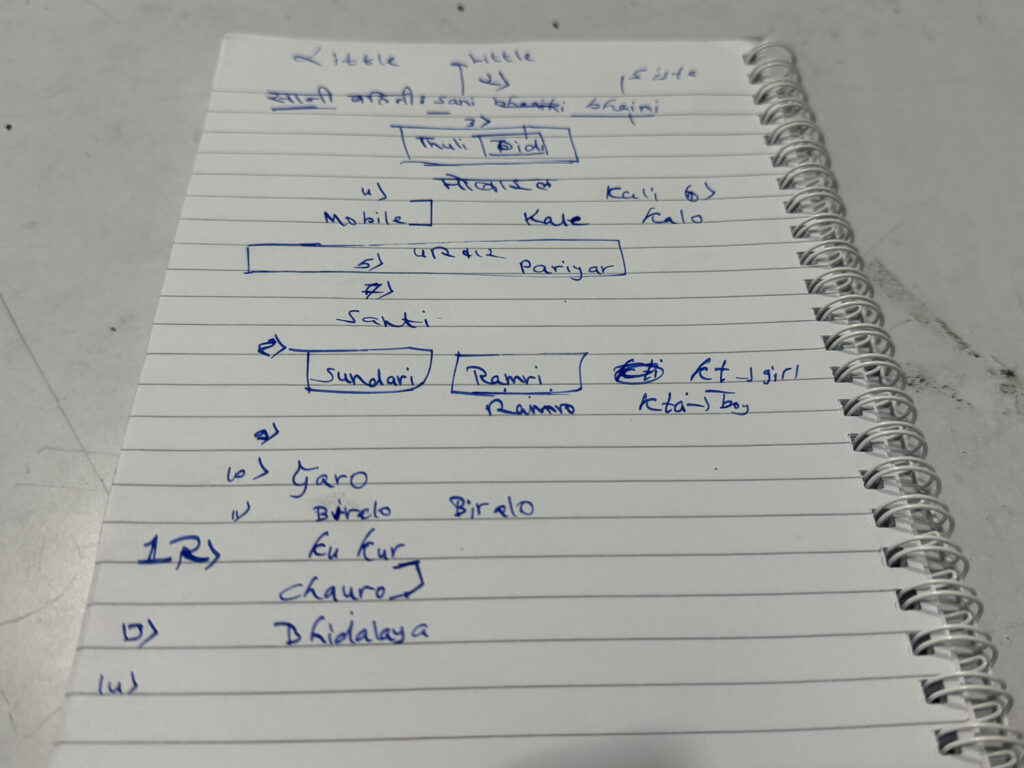 Little Little
2) Siste
सानी बहिनी: sani bhaini
3)
Thuli Didi
4) मोबाइल Kali 6)
Mobile Kale Kalo
5) Pariyar
7)
Santi
Sundari Ramri kt → girl
Ramro kta → boy
9)
10) Garo
11) Birelo Biralo
12) Ku kur
Chauro
Bhidalaya
14)